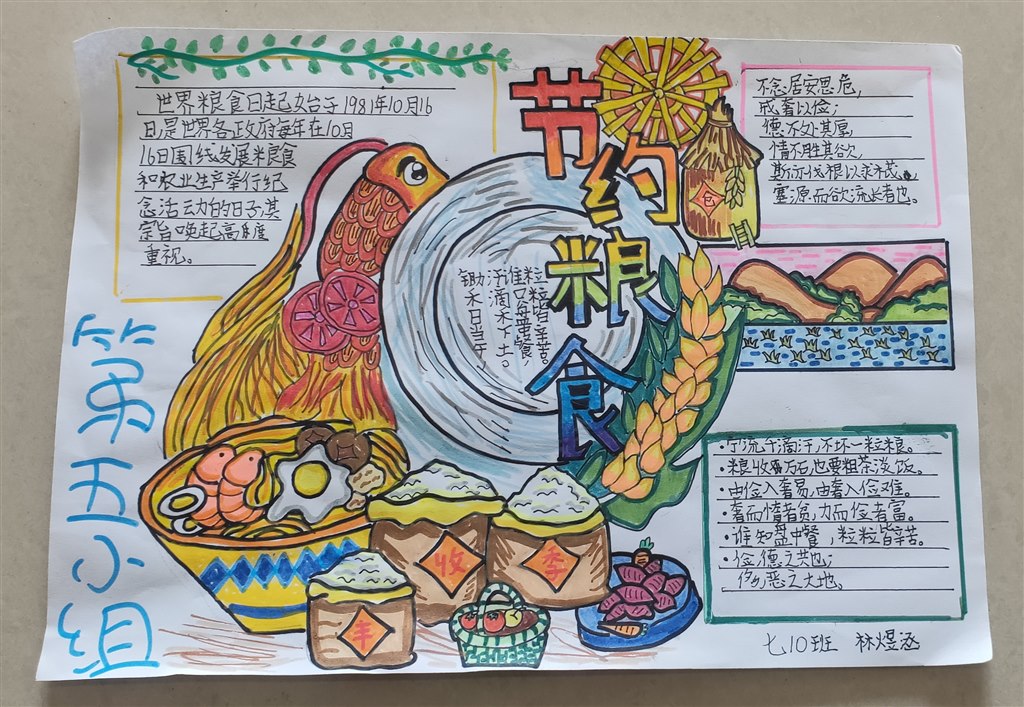 节约粮食
世界粮食日起始于1981年10月16
日,是世界各政府每年在10月
16日围绕发展粮食
和农业生产举行纪
念活动的日子,其
宗旨唤起高度
重视。
不念居安思危,
戒奢以俭;
德不处其厚,
情不胜其欲,
斯亦伐根以求木茂,
塞源而欲流长者也。
包
锄禾日当午,
汗滴禾下土。
谁知盘中餐,
粒粒皆辛苦。
第五小组
收
季
丰
·宁流千滴汗,不坏一粒粮。
·粮收万石,也要粗茶淡饭。
·由俭入奢易,由奢入俭难。
·奢而惰者贫,力而俭者富。
·谁知盘中餐,粒粒皆辛苦。
·俭,德之共也;
侈,恶之大地。
七10班 林煜涵